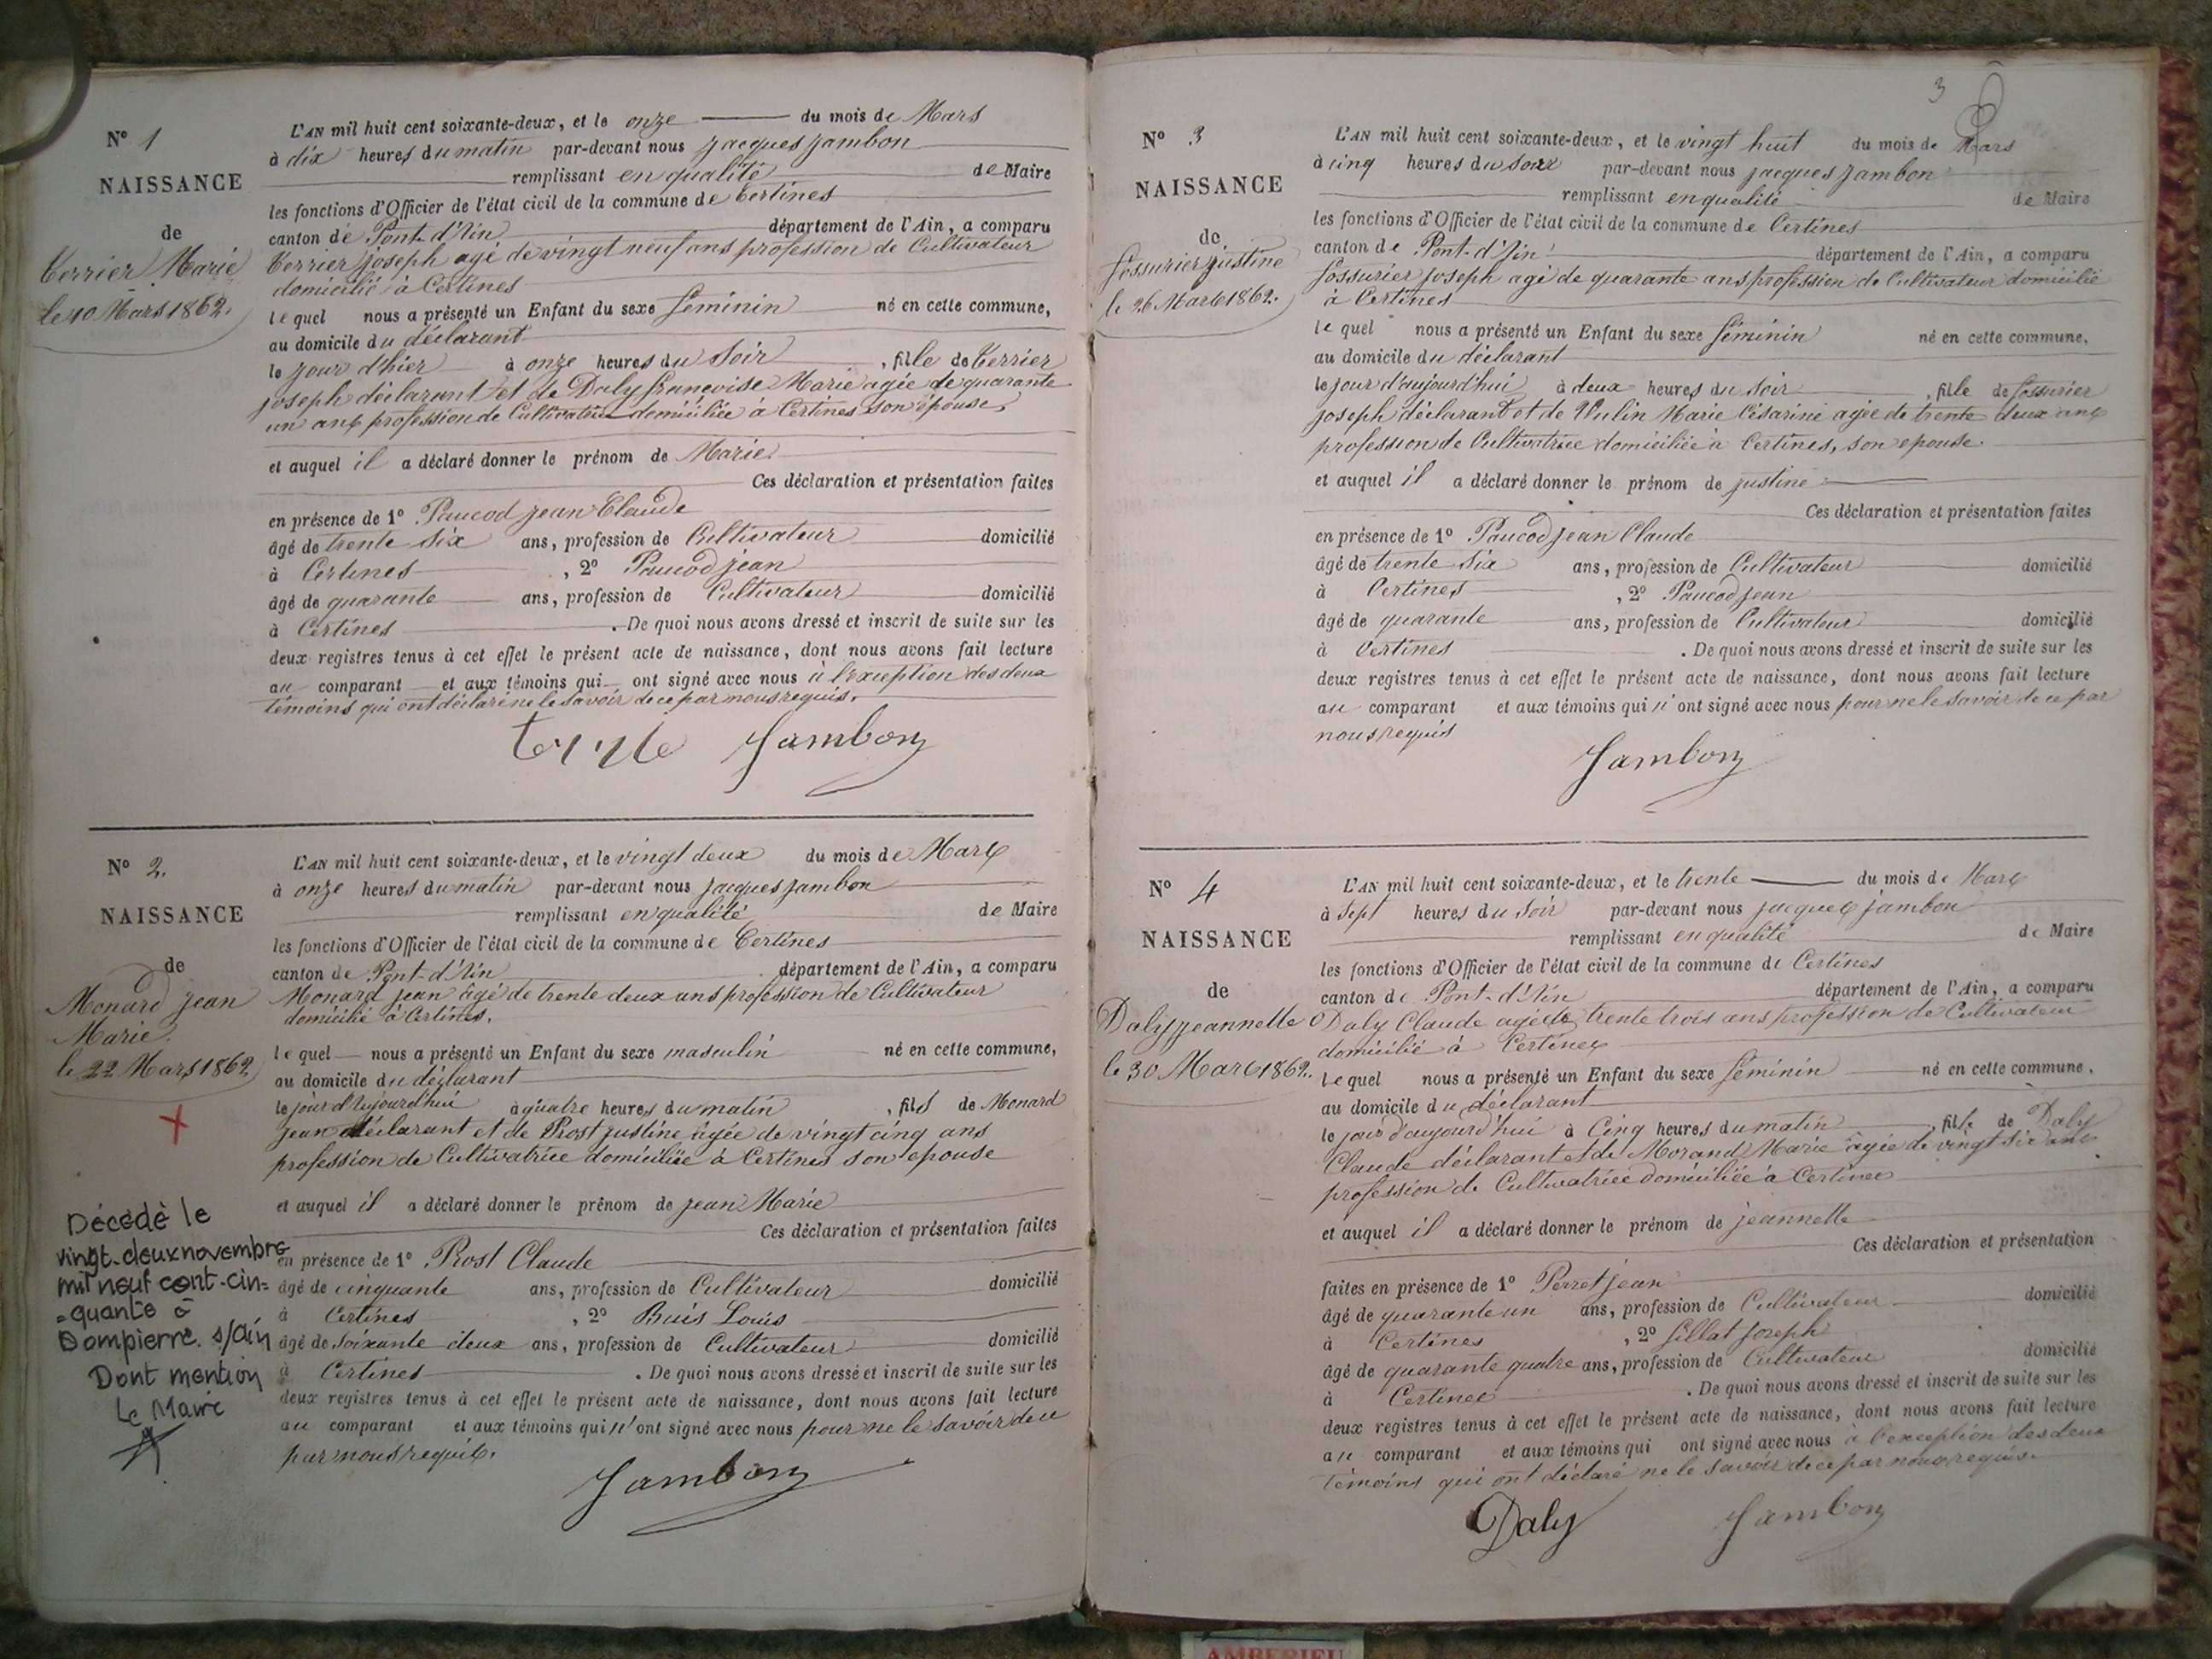 N° 1
NAISSANCE
de
Terrier Marie
le 10 Mars 1862.
L'AN mil huit cent soixante-deux, et le onze du mois de Mars
à dix heures du matin par-devant nous jacques jambon
remplissant en qualité de Maire
les fonctions d'Officier de l'état civil de la commune de Certines
canton de Pont-d'Ain département de l'Ain, a comparu
Terrier joseph agé de vingt neuf ans profession de Cultivateur
domicilié à Certines
le quel nous a présenté un Enfant du sexe féminin né en cette commune,
au domicile du déclarant
le jour d'hier à onze heures du soir, fille de Terrier
joseph déclarant et de Daly françoise Marie agée de quarante
un ans profession de Cultivatrice domiciliée à Certines son épouse,
et auquel il a déclaré donner le prénom de Marie.
Ces déclaration et présentation faites
en présence de 1° Paucod jean Claude
âgé de trente six ans, profession de Cultivateur domicilié
à Certines, 2° Paucod jean
âgé de quarante ans, profession de Cultivateur domicilié
à Certines. De quoi nous avons dressé et inscrit de suite sur les
deux registres tenus à cet effet le présent acte de naissance, dont nous avons fait lecture
au comparant et aux témoins qui ont signé avec nous à l'exception des deux
témoins qui ont déclaré ne le savoir de ce par nous requis.
Jambon
N° 2.
NAISSANCE
de
Monard jean
Marie.
le 22 Mars 1862
Décédé le
vingt-deux novembre
mil neuf cent-cin=
=quante à
Dompierre s/Ain
Dont mention
Le Maire
L'AN mil huit cent soixante-deux, et le vingt deux du mois de Mars
à onze heures du matin par-devant nous jacques jambon
remplissant en qualité de Maire
les fonctions d'Officier de l'état civil de la commune de Certines
canton de Pont-d'Ain département de l'Ain, a comparu
Monard jean âgé de trente deux ans profession de Cultivateur
domicilié à Certines.
le quel nous a présenté un Enfant du sexe masculin né en cette commune,
au domicile du déclarant
le jour d'aujourd'hui à quatre heures du matin, fils de Monard
jean déclarant et de Prost justine âgée de vingt cinq ans
profession de Cultivatrice domiciliée à Certines son epouse
et auquel il a déclaré donner le prénom de jean Marie
Ces déclaration et présentation faites
en présence de 1° Prost Claude
âgé de cinquante ans, profession de Cultivateur domicilié
à Certines, 2° Buis Louis
âgé de soixante deux ans, profession de Cultivateur domicilié
à Certines. De quoi nous avons dressé et inscrit de suite sur les
deux registres tenus à cet effet le présent acte de naissance, dont nous avons fait lecture
au comparant et aux témoins qui n'ont signé avec nous pour ne le savoir de ce
par nous requis.
Jambon
3
N° 3
NAISSANCE
de
fossurier justine
le 26 Mars 1862.
L'AN mil huit cent soixante-deux, et le vingt huit du mois de Mars
à cinq heures du soir par-devant nous jacques jambon
remplissant en qualité de Maire
les fonctions d'Officier de l'état civil de la commune de Certines
canton de Pont-d'Ain département de l'Ain, a comparu
fossurier joseph agé de quarante ans profession de Cultivateur domicilié
à Certines
le quel nous a présenté un Enfant du sexe féminin né en cette commune,
au domicile du déclarant
le jour d'aujourd'hui à deux heures du soir, fille de fossurier
joseph déclarant et de Vulin Marie Césarine agée de trente deux ans
profession de Cultivatrice domiciliée à Certines, son epouse.
et auquel il a déclaré donner le prénom de justine
Ces déclaration et présentation faites
en présence de 1° Paucod jean Claude
âgé de trente six ans, profession de Cultivateur domicilié
à Certines, 2° Paucod jean
âgé de quarante ans, profession de Cultivateur domicilié
à Certines. De quoi nous avons dressé et inscrit de suite sur les
deux registres tenus à cet effet le présent acte de naissance, dont nous avons fait lecture
au comparant et aux témoins qui n'ont signé avec nous pour ne le savoir de ce par
nous requis
Jambon
N° 4
NAISSANCE
de
Daly jeannette
le 30 Mars 1862.
L'AN mil huit cent soixante-deux, et le trente du mois de Mars
à sept heures du soir par-devant nous jacques jambon
remplissant en qualité de Maire
les fonctions d'Officier de l'état civil de la commune de Certines
canton de Pont-d'Ain département de l'Ain, a comparu
Daly Claude agé de trente trois ans profession de Cultivateur
domicilié à Certines
le quel nous a présenté un Enfant du sexe féminin né en cette commune,
au domicile du déclarant
le jour d'aujourd'hui à Cinq heures du matin, fille de Daly
Claude déclarant et de Morand Marie agée de vingt six ans
profession de Cultivatrice domiciliée à Certines
et auquel il a déclaré donner le prénom de jeannette
Ces déclaration et présentation
faites en présence de 1° Perret jean
âgé de quarante un ans, profession de Cultivateur domicilié
à Certines, 2° fillat Joseph
âgé de quarante quatre ans, profession de Cultivateur domicilié
à Certines. De quoi nous avons dressé et inscrit de suite sur les
deux registres tenus à cet effet le présent acte de naissance, dont nous avons fait lecture
au comparant et aux témoins qui ont signé avec nous à l'exception des deux
témoins qui ont déclaré ne le savoir de ce par nous requis.
Daly Jambon
AMBERIEU